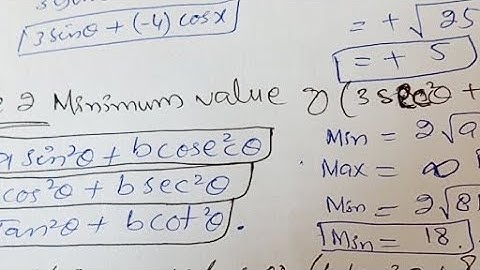 3sinθ + (-4) cosx
= + √25
= + 5
2 Minimum value of (3sec²θ +
a sin²θ + b cosec²θ
cos²θ + b sec²θ
tan²θ + b cot²θ.
Min = 2√a
Max = ∞
Min = 2√81
Min = 18.